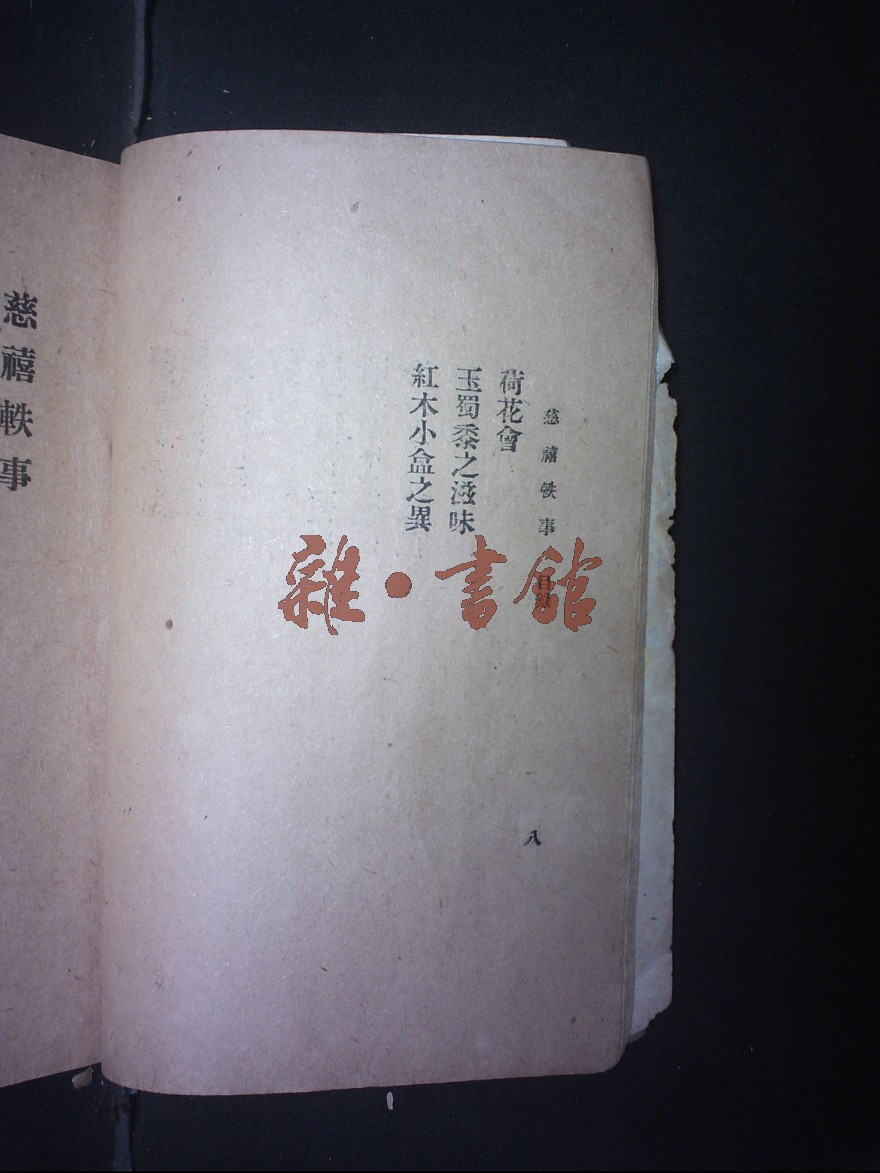 慈禧軼事 目錄
荷花會
玉蜀黍之滋味
紅木小盒之異
八
慈禧軼事
雜·書館